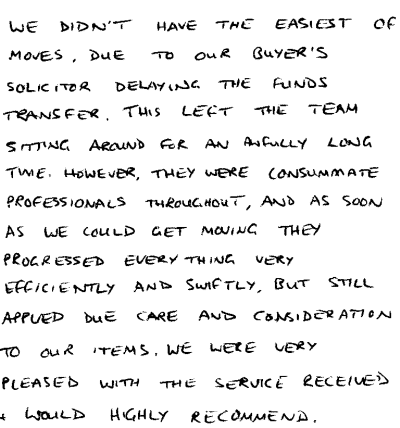 WE DIDN'T HAVE THE EASIEST OF
MOVES, DUE TO OUR BUYER'S
SOLICITOR DELAYING THE FUNDS
TRANSFER. THIS LEFT THE TEAM
SITTING AROUND FOR AN AWFULLY LONG
TIME. HOWEVER, THEY WERE CONSUMMATE
PROFESSIONALS THROUGHOUT, AND AS SOON
AS WE COULD GET MOVING THEY
PROGRESSED EVERYTHING VERY
EFFICIENTLY AND SWIFTLY, BUT STILL
APPLIED DUE CARE AND CONSIDERATION
TO OUR ITEMS. WE WERE VERY
PLEASED WITH THE SERVICE RECEIVED
+ WOULD HIGHLY RECOMMEND.